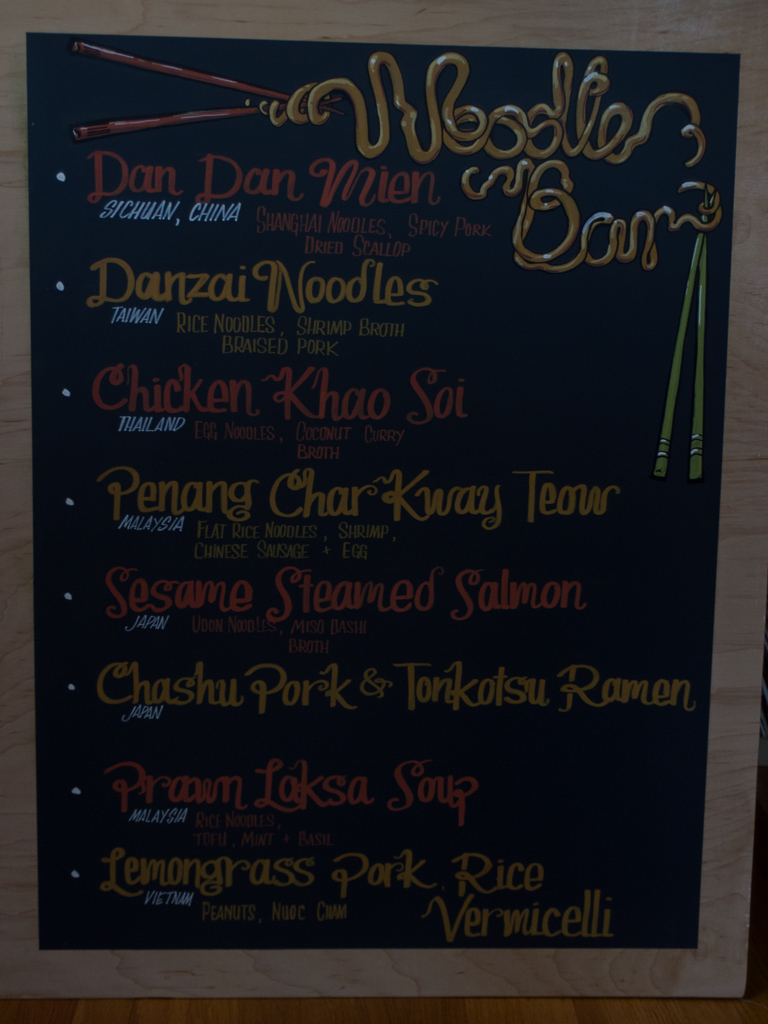 Noodles
Bar
Dan Dan Mien
SICHUAN, CHINA
SHANGHAI NOODLES, SPICY PORK
DRIED SCALLOP
Danzai Noodles
TAIWAN
RICE NOODLES, SHRIMP BROTH
BRAISED PORK
Chicken Khao Soi
THAILAND
EGG NOODLES, COCONUT CURRY
BROTH
Penang Char Kway Teow
MALAYSIA
FLAT RICE NOODLES, SHRIMP,
CHINESE SAUSAGE + EGG
Sesame Steamed Salmon
JAPAN
UDON NOODLES, MISO DASHI
BROTH
Chashu Pork & Tonkotsu Ramen
JAPAN
Prawn Laksa Soup
MALAYSIA
RICE NOODLES,
TOFU, MINT + BASIL
Lemongrass Pork, Rice
Vermicelli
VIETNAM
PEANUTS, NUOC CHAM